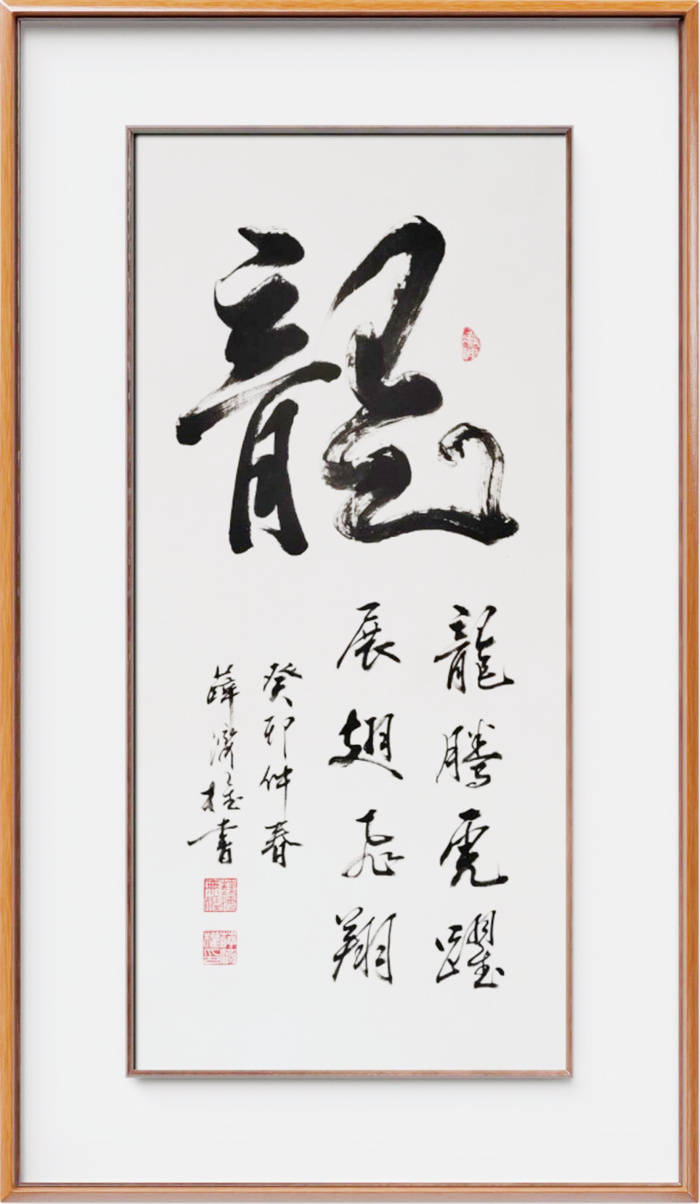 龍
龍騰虎躍
展翅飛翔
癸卯仲春
薛濟書